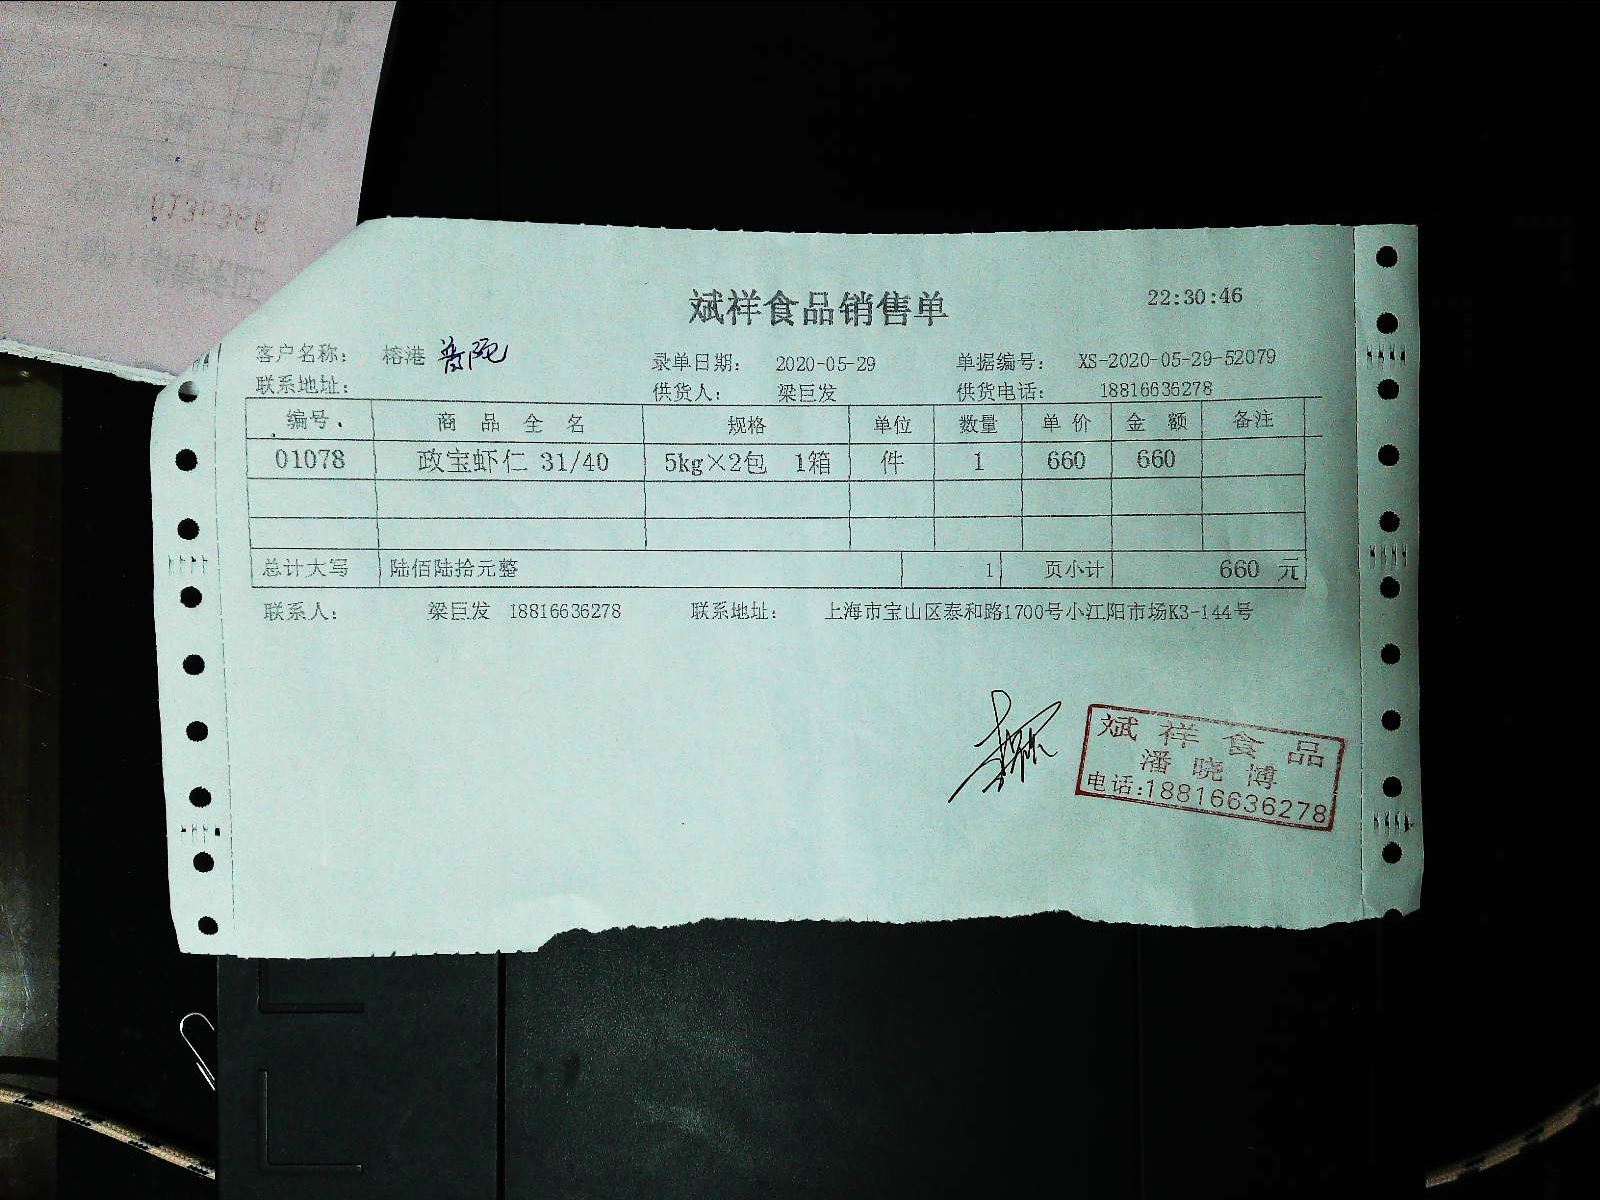 斌祥食品销售单 22:30:46
客户名称: 榕港 普陀 录单日期: 2020-05-29 单据编号: XS-2020-05-29-52079
联系地址: 供货人: 梁巨发 供货电话: 18816636278
编号 商品全名 规格 单位 数量 单价 金额 备注
01078 政宝虾仁 31/40 5kg×2包 1箱 件 1 660 660
总计大写 陆佰陆拾元整 1 页小计 660 元
联系人: 梁巨发 18816636278 联系地址: 上海市宝山区泰和路1700号小江阳市场K3-144号
斌祥食品
潘晓博
电话:18816636278